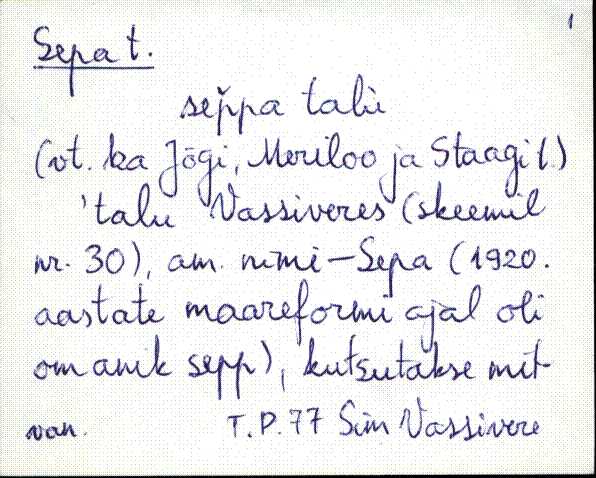 1
Sepa t.
sep̆pa talu
(vt. ka Jõgi, Meriloo ja Staagi t.)
'talu Vassiveres (skeemil
nr. 30), am. nimi – Sepa (1920.
aastate maareformi ajal oli
omanik sepp), kutsutakse mit-
van. T.P. 77 Sim Vassivere